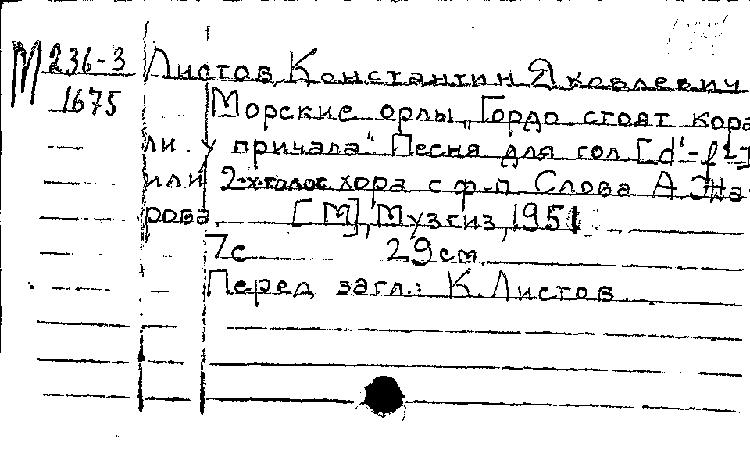 М 236-3
1675
Листов, Константин Яковлевич
Морские орлы. „Гордо стоят кораб
ли у причала". Песня для гол. [d¹-f²]
или 2-хголос хора с ф-п. Слова А. Жа-
рова. [М], Музгиз, 1951
7с 29см.
Перед загл.: К. Листов